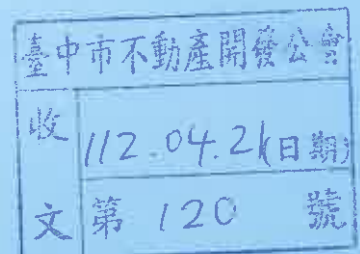 臺中市不動產開發公會
收
112.04.21(日期)
文
第 120 號